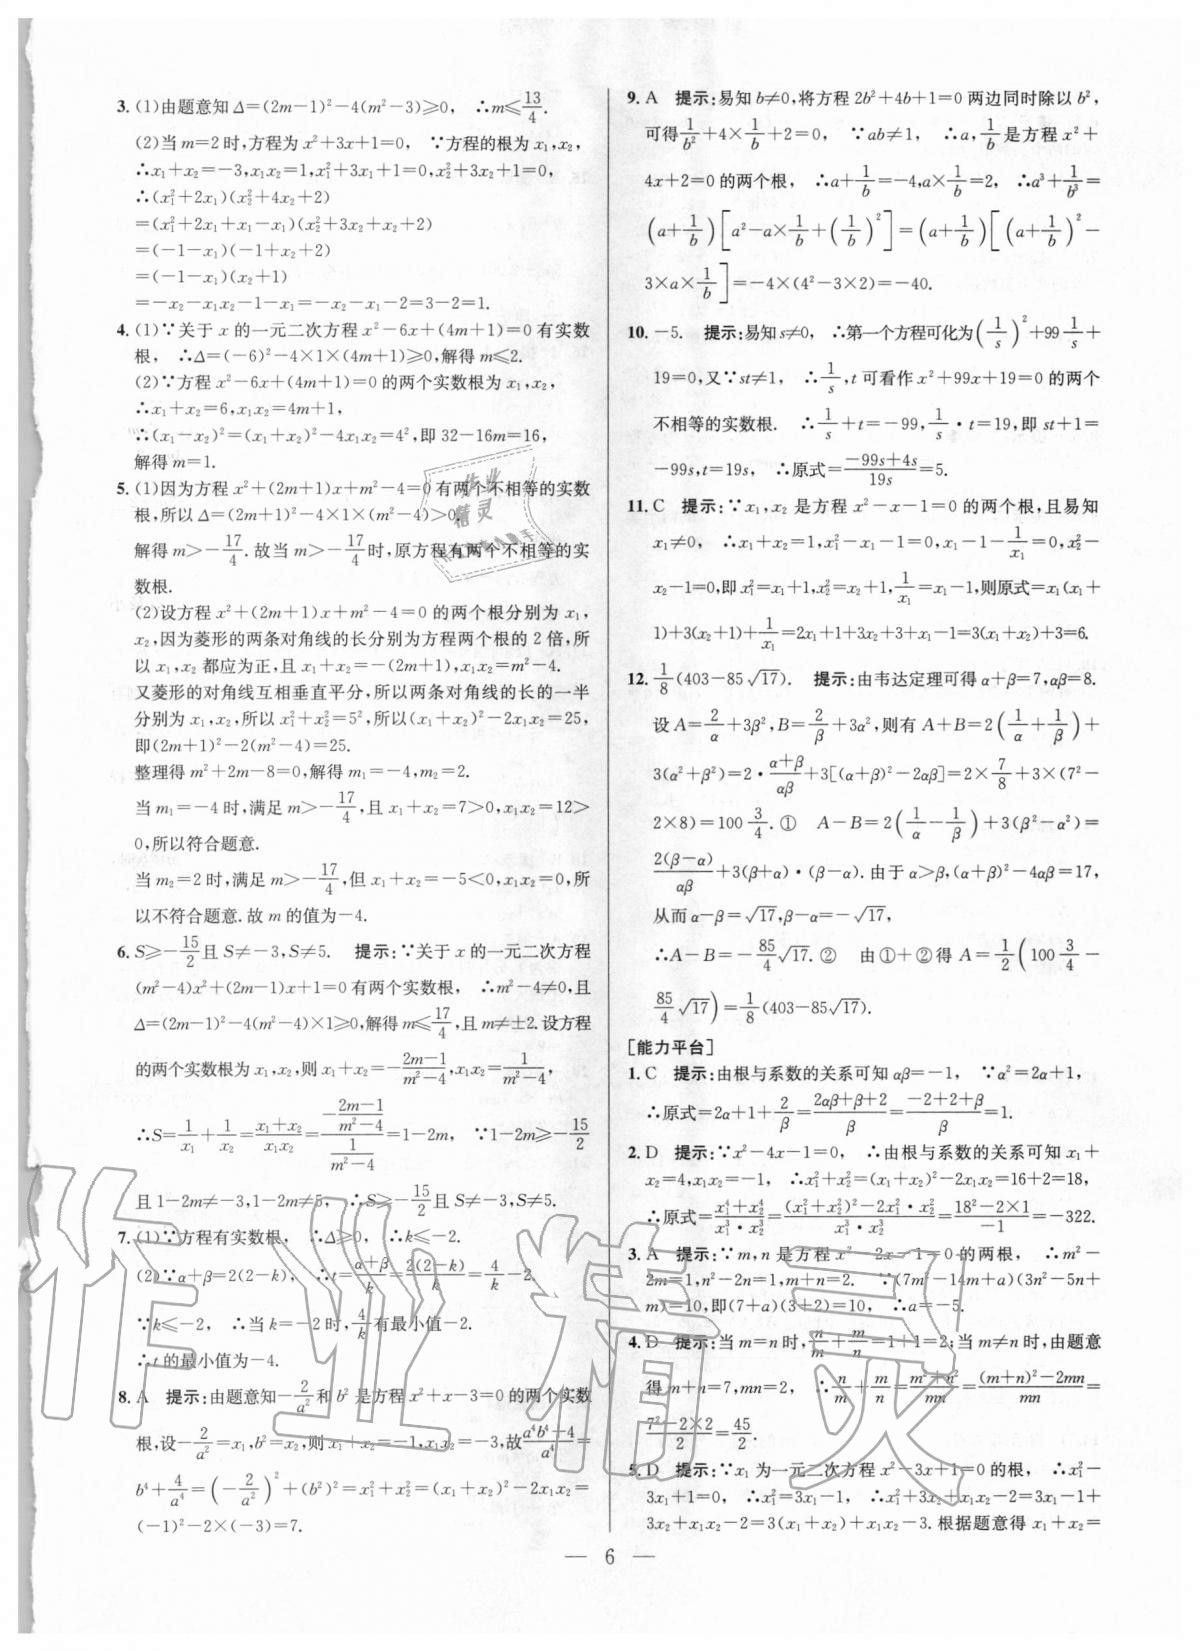 3. (1)由题意知 Δ=(2m-1)²-4(m²-3)≥0, ∴m≤13/4.
(2)当 m=2 时,方程为 x²+3x+1=0, ∵方程的根为 x₁,x₂,
∴x₁+x₂=-3,x₁x₂=1,x₁²+3x₁+1=0,x₂²+3x₂+1=0,
∴(x₁²+2x₁)(x₂²+4x₂+2)
=(x₁²+2x₁+x₁-x₁)(x₂²+3x₂+x₂+2)
=(-1-x₁)(-1+x₂+2)
=(-1-x₁)(x₂+1)
=-x₂-x₁x₂-1-x₁=-x₂-x₁-2=3-2=1.
4. (1)∵关于 x 的一元二次方程 x²-6x+(4m+1)=0 有实数
根, ∴Δ=(-6)²-4×1×(4m+1)≥0,解得 m≤2.
(2)∵方程 x²-6x+(4m+1)=0 的两个实数根为 x₁,x₂,
∴x₁+x₂=6,x₁x₂=4m+1,
∴(x₁-x₂)²=(x₁+x₂)²-4x₁x₂=4²,即 32-16m=16,
解得 m=1.
5. (1)因为方程 x²+(2m+1)x+m²-4=0 有两个不相等的实数
根,所以 Δ=(2m+1)²-4×1×(m²-4)>0.
解得 m>-17/4. 故当 m>-17/4 时,原方程有两个不相等的实
数根.
(2)设方程 x²+(2m+1)x+m²-4=0 的两个根分别为 x₁,
x₂,因为菱形的两条对角线的长分别为方程两个根的 2 倍,所
以 x₁,x₂ 都应为正,且 x₁+x₂=-(2m+1),x₁x₂=m²-4.
又菱形的对角线互相垂直平分,所以两条对角线的长的一半
分别为 x₁,x₂,所以 x₁²+x₂²=5²,所以(x₁+x₂)²-2x₁x₂=25,
即(2m+1)²-2(m²-4)=25.
整理得 m²+2m-8=0,解得 m₁=-4,m₂=2.
当 m₁=-4 时,满足 m>-17/4,且 x₁+x₂=7>0,x₁x₂=12>
0,所以符合题意.
当 m₂=2 时,满足 m>-17/4,但 x₁+x₂=-5<0,x₁x₂=0,所
以不符合题意. 故 m 的值为-4.
6. S≥-15/2且 S≠-3,S≠5. 提示:∵关于 x 的一元二次方程
(m²-4)x²+(2m-1)x+1=0 有两个实数根, ∴m²-4≠0,且
Δ=(2m-1)²-4(m²-4)×1≥0,解得 m≤17/4,且 m≠±2. 设方程
的两个实数根为 x₁,x₂,则 x₁+x₂=-(2m-1)/(m²-4),x₁x₂=1/(m²-4),
∴S=1/x₁+1/x₂=(x₁+x₂)/(x₁x₂)=(-(2m-1)/(m²-4))/(1/(m²-4))=1-2m, ∵1-2m≥-15/2
且 1-2m≠-3,1-2m≠5, ∴S≥-15/2且 S≠-3,S≠5.
7. (1)∵方程有实数根, ∴Δ≥0, ∴k≤-2.
(2)∵α+β=2(2-k), ∴t=(α+β)/k=2(2-k)/k=4/k-2.
∵k≤-2, ∴当 k=-2 时,4/k有最小值-2.
∴t 的最小值为-4.
8. A 提示:由题意知-2/a²和 b² 是方程 x²+x-3=0 的两个实数
根,设-2/a²=x₁,b²=x₂,则 x₁+x₂=-1,x₁x₂=-3,故(a⁴b⁴+4)/a⁴=
b⁴+4/a⁴=(-2/a²)²+(b²)²=x₁²+x₂²=(x₁+x₂)²-2x₁x₂=
(-1)²-2×(-3)=7.
9. A 提示:易知 b≠0,将方程 2b²+4b+1=0 两边同时除以 b²,
可得1/b²+4×1/b+2=0, ∵ab≠1, ∴a,1/b是方程 x²+
4x+2=0 的两个根, ∴a+1/b=-4,a×1/b=2, ∴a³+1/b³=
(a+1/b)[a²-a×1/b+(1/b)²]=(a+1/b)[(a+1/b)²-
3×a×1/b]=-4×(4²-3×2)=-40.
10. -5. 提示:易知 s≠0, ∴第一个方程可化为(1/s)²+99 1/s+
19=0,又∵st≠1, ∴1/s,t 可看作 x²+99x+19=0 的两个
不相等的实数根. ∴1/s+t=-99,1/s·t=19,即 st+1=
-99s,t=19s, ∴原式=(-99s+4s)/19s=-5.
11. C 提示:∵x₁,x₂ 是方程 x²-x-1=0 的两个根,且易知
x₁≠0, ∴x₁+x₂=1,x₁²-x₁-1=0,x₁-1-1/x₁=0,x₂²-
x₂-1=0,即 x₁²=x₁+1,x₂²=x₂+1,1/x₁=x₁-1,则原式=x₁(x₁+
1)+3(x₂+1)+1/x₁=2x₁+1+3x₂+3+x₁-1=3(x₁+x₂)+3=6.
12. 1/8(403-85√17). 提示:由韦达定理可得 α+β=7,αβ=8.
设 A=2/α+3β²,B=2/β+3α²,则有 A+B=2(1/α+1/β)+
3(α²+β²)=2·(α+β)/αβ+3[(α+β)²-2αβ]=2×7/8+3×(7²-
2×8)=100 3/4. ① A-B=2(1/α-1/β)+3(β²-α²)=
2(β-α)/αβ+3(β+α)·(β-α). 由于 α>β,(α+β)²-4αβ=17,
从而 α-β=√17,β-α=-√17,
∴A-B=-85/4√17. ② 由①+②得 A=1/2(100 3/4-
85/4√17)=1/8(403-85√17).
[能力平台]
1. C 提示:由根与系数的关系可知 αβ=-1, ∵α²=2α+1,
∴原式=2α+1+2/β=(2αβ+β+2)/β=(-2+2+β)/β=1.
2. D 提示:∵x²-4x-1=0, ∴由根与系数的关系可知 x₁+
x₂=4,x₁x₂=-1, ∴x₁²+x₂²=(x₁+x₂)²-2x₁x₂=16+2=18,
∴原式=(x₁⁴+x₂⁴)/(x₁³·x₂³)=((x₁²+x₂²)²-2x₁²·x₂²)/(x₁³·x₂³)=(18²-2×1)/(-1)=-322.
3. A 提示:∵m,n 是方程 x²-2x-1=0 的两根, ∴m²-
2m=1,n²-2n=1,m+n=2. ∵(7m²-14m+a)(3n²-5n+
m)=10,即(7+a)(3+2)=10, ∴a=-5.
4. D 提示:当 m=n 时,n/m+m/n=1+1=2;当 m≠n 时,由题意
得 m+n=7,mn=2, ∴n/m+m/n=(m²+n²)/mn=((m+n)²-2mn)/mn=
(7²-2×2)/2=45/2.
5. D 提示:∵x₁ 为一元二次方程 x²-3x+1=0 的根, ∴x₁²-
3x₁+1=0, ∴x₁²=3x₁-1, ∴x₁²+3x₂+x₁x₂-1=3x₁-1+
3x₂+x₁x₂-2=3(x₁+x₂)+x₁x₂-3. 根据题意得 x₁+x₂=
— 6 —
作业精灵